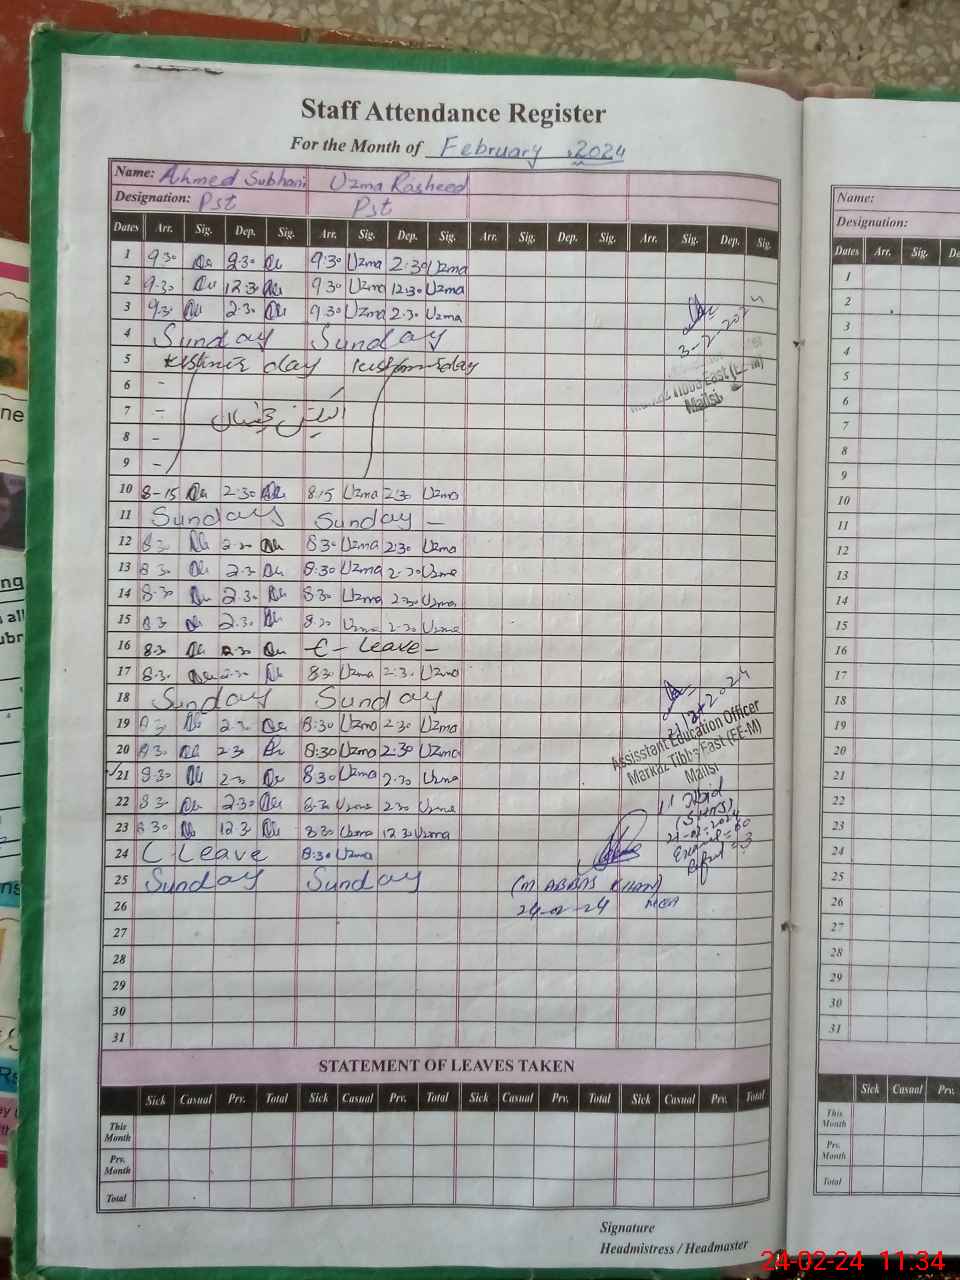 Staff Attendance Register
For the Month of February 2024
Name: Ahmed Subhani Uzma Rasheed
Designation: Pst Pst
Dates Arr. Sig. Dep. Sig. Arr. Sig. Dep. Sig. Arr. Sig. Dep. Sig. Arr. Sig. Dep. Sig.
1 9:30 2:30 9:30 Uzma 2:30 Uzma
2 9.30 12:30 9.30 Uzma 12:30 Uzma
3 9.30 2.30 9.30 Uzma 2.30 Uzma
4 Sunday Sunday
5 Kashmir day
6 -
7 -
8 -
9 -
10 8-15 2:30 8:15 Uzma 2:30 Uzma
11 Sunday Sunday -
12 8.30 2.30 8:30 Uzma 2:30 Uzma
13 8.30 2.30 8:30 Uzma 2.30 Uzma
14 8.30 2.30 8:30 Uzma 2.30 Uzma
15 8.30 2.30 8:30 Uzma 2.30 Uzma
16 8.30 2.30 C- Leave-
17 8.30 2.30 8:30 Uzma 2:30 Uzma
18 Sunday Sunday
19 8.30 2.30 8:30 Uzma 2:30 Uzma
20 8.30 2.30 8:30 Uzma 2:30 Uzma
21 8.30 2.30 8:30 Uzma 2:30 Uzma
22 8.30 2:30 8:30 Uzma 2:30 Uzma
23 8:30 12.30 8:30 Uzma 12.30 Uzma
24 C Leave 8:30 Uzma
25 Sunday Sunday
26
27
28
29
30
31
3-2-2024
Markaz Tibba East (EE-M)
Mailsi
21/2/2024
Assisstant Education Officer
Markaz Tibba East (EE-M)
Mailsi
(M ABBAS KHAN)
24-02-24 MEA
STATEMENT OF LEAVES TAKEN
Sick Casual Prv. Total Sick Casual Prv. Total Sick Casual Prv. Total Sick Casual Prv. Total
This Month
Prv. Month
Total
Signature
Headmistress / Headmaster
Name:
Designation:
Dates Arr. Sig.
1
2
3
4
5
6
7
8
9
10
11
12
13
14
15
16
17
18
19
20
21
22
23
24
25
26
27
28
29
30
31
Sick Casual Prv.
This Month
Prv. Month
Total
24-02-24 11:34